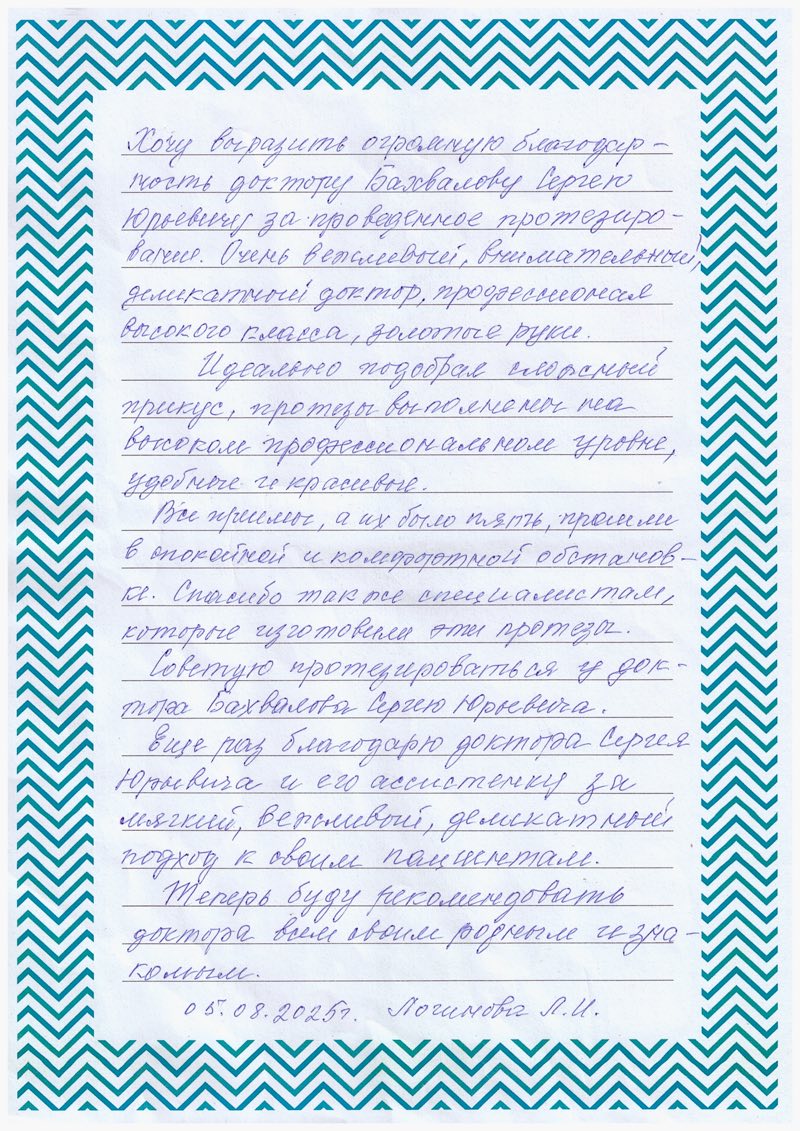 Хочу выразить огромную благодар-
ность доктору Бахвалову Сергею
Юрьевичу за проведенное протезиро-
вание. Очень вежливый, внимательный,
деликатный доктор, профессионал
высокого класса, золотые руки.
Идеально подобрал сложный
прикус, протезы выполнены на
высоком профессиональном уровне,
удобные и красивые.
Все приемы, а их было пять, прошли
в спокойной и комфортной обстанов-
ке. Спасибо также специалистам,
которые изготовили эти протезы.
Советую протезироваться у док-
тора Бахвалова Сергею Юрьевича.
Еще раз благодарю доктора Сергея
Юрьевича и его ассистенку за
мягкий, вежливый, деликатный
подход к своим пациентам.
Теперь буду рекомендовать
доктора всем своим родным и зна-
комым.
05.08.2025г. Логинова Л.И.